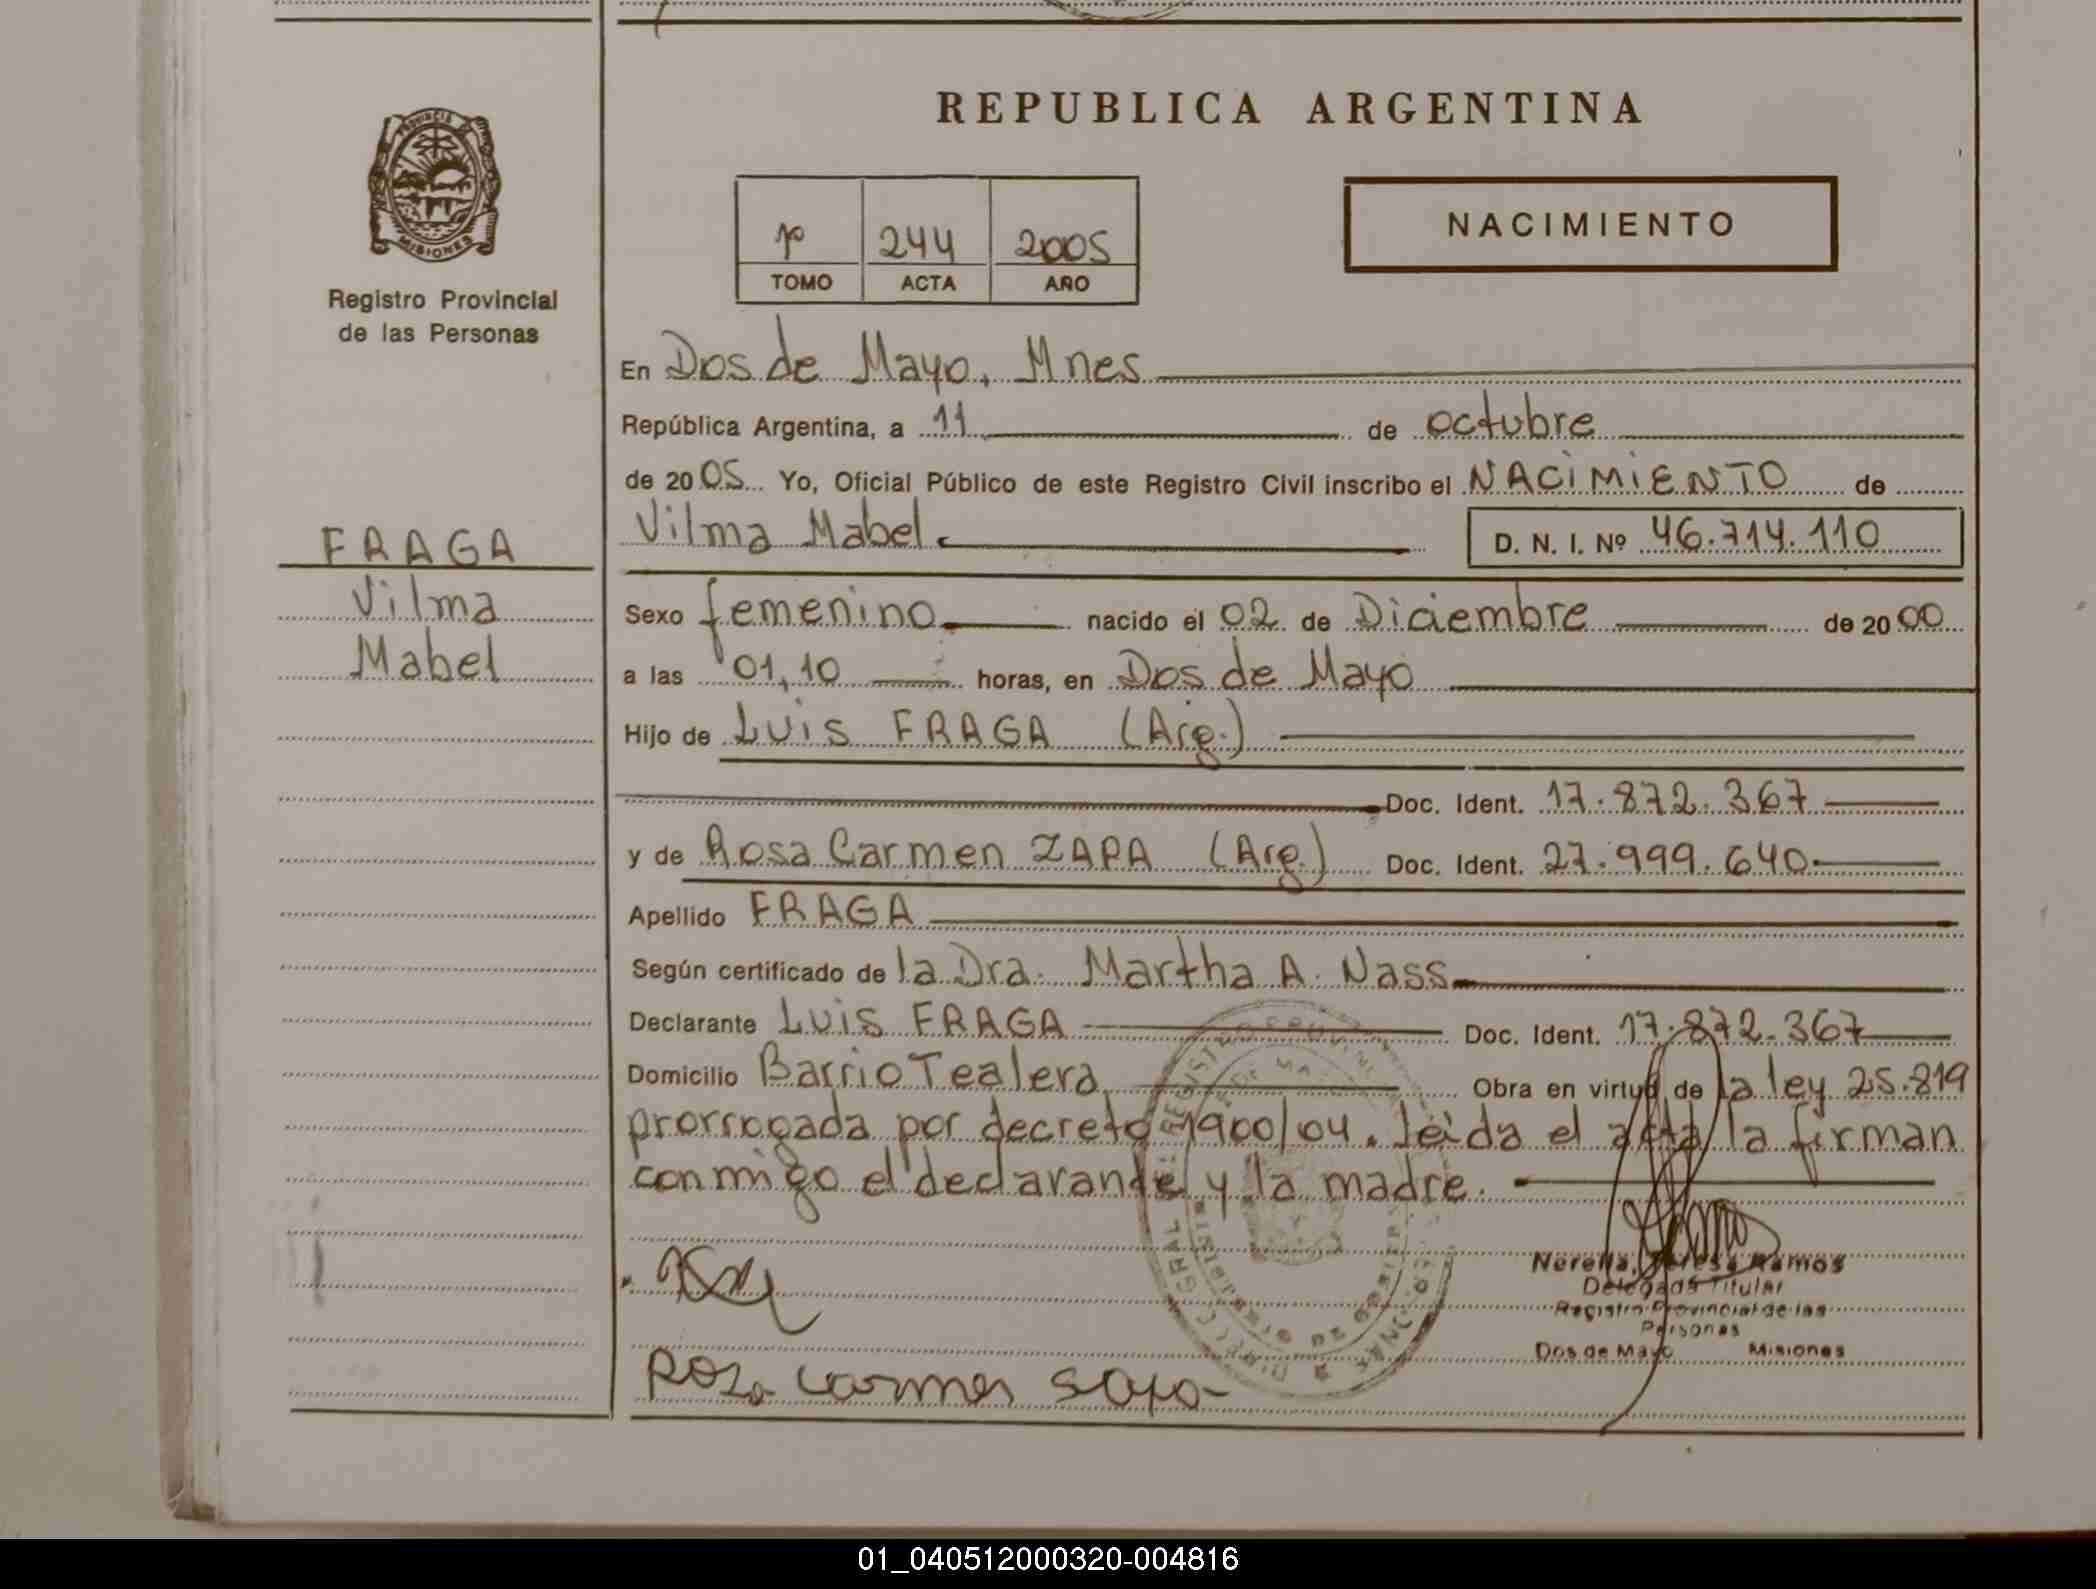 REPUBLICA ARGENTINA
PROVINCIA DE
MISIONES
Registro Provincial
de las Personas
1º 244 2005
TOMO ACTA AÑO
NACIMIENTO
En Dos de Mayo, Mnes
República Argentina, a 11 de octubre
de 2005 Yo, Oficial Público de este Registro Civil inscribo el NACIMIENTO de
Vilma Mabel
D. N. I. Nº 46.714.110
FRAGA
Vilma
Mabel
Sexo femenino nacido el 02 de Diciembre de 2000
a las 01,10 horas, en Dos de Mayo
Hijo de Luis FRAGA (Arg.)
Doc. Ident. 17.872.367
y de Rosa Carmen ZAPA (Arg.) Doc. Ident. 27.999.640
Apellido FRAGA
Según certificado de la Dra. Martha A. Nass
Declarante Luis FRAGA Doc. Ident. 17.872.367
Domicilio Barrio Tealera Obra en virtud de la ley 25.819
prorrogada por decreto 1900/04. leída el acta la firman
conmigo el declarante y la madre.
Ramos
Delegada Titular
Registro Provincial de las
Personas
Dos de Mayo Misiones
Rosa Carmen
01_040512000320-004816